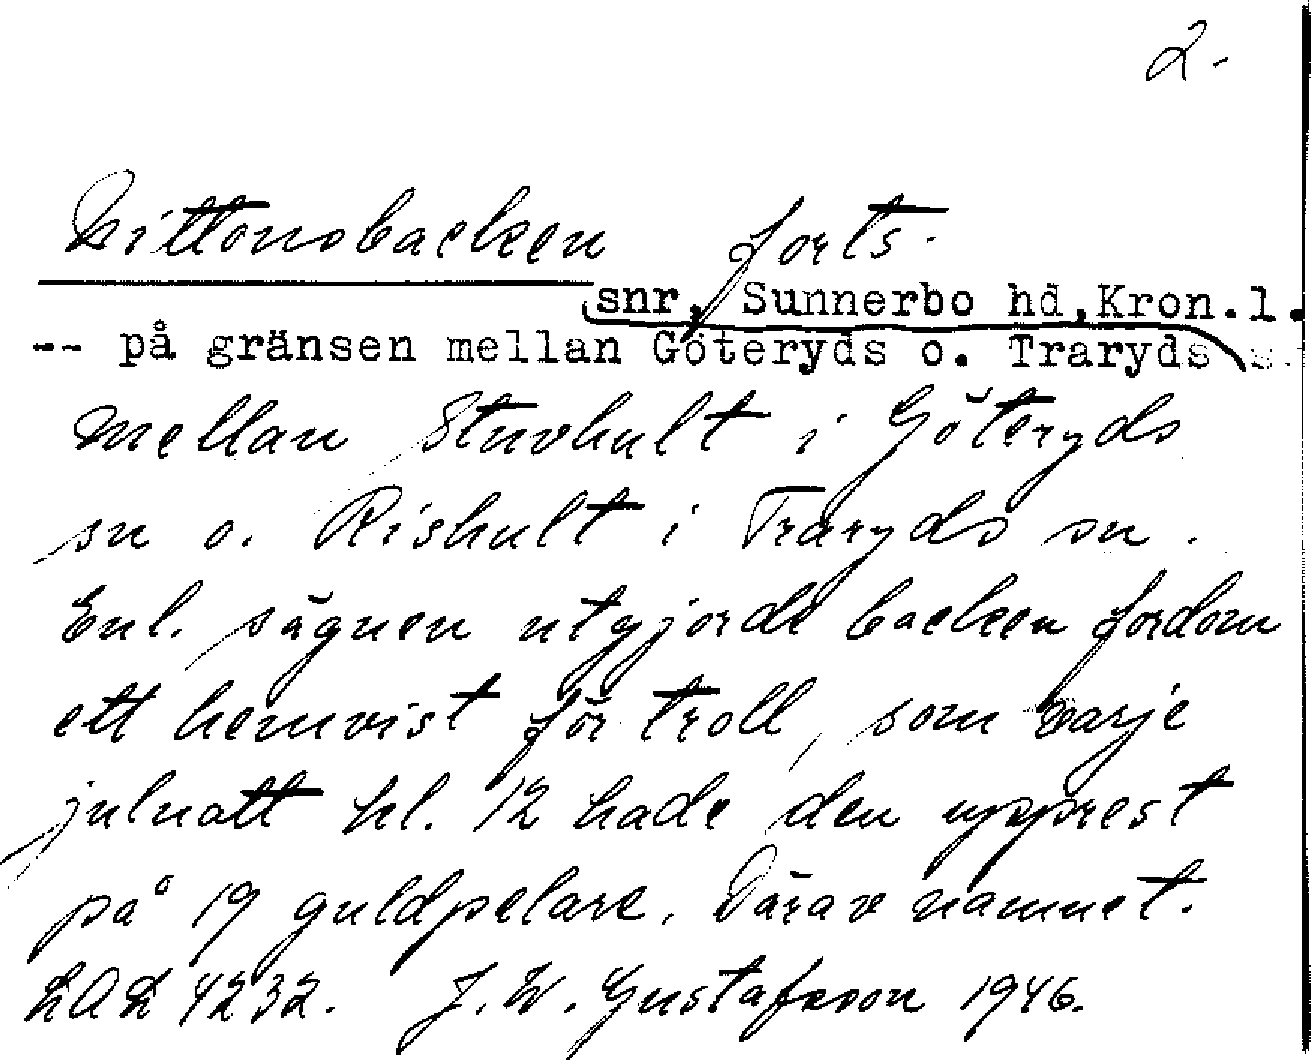 2.
Nittonsbacken forts.
snr, Sunnerbo hd, Kron.l.
-- på gränsen mellan Göteryds o. Traryds
mellan Stuvhult i Göteryds
sn o. Rishult i Traryds sn.
Enl. sägnen utgjorde backen fordom
ett hemvist för troll, som varje
julnatt kl. 12 hade den upprest
på 19 guldpelare. Därav namnet.
LAL 4232. J. W. Gustafsson 1946.